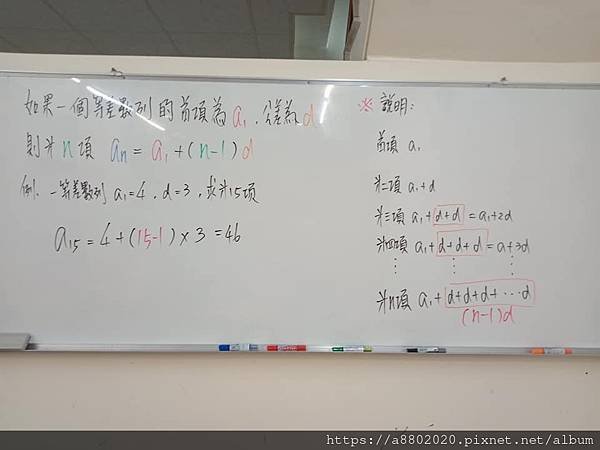 如果一個等差數列的首項為a₁,公差為d
則第n項 aₙ = a₁+(n-1)d
例. 一等差數列 a₁=4, d=3, 求第15項
a₁₅ = 4+(15-1)×3 = 46
※ 說明:
首項 a₁
第二項 a₁+d
第三項 a₁+d+d = a₁+2d
第四項 a₁+d+d+d = a+3d
⋮ ⋮ ⋮
第n項 a₁+d+d+d+⋯d
(n-1)d
https://a8802020.pixnet.net/album